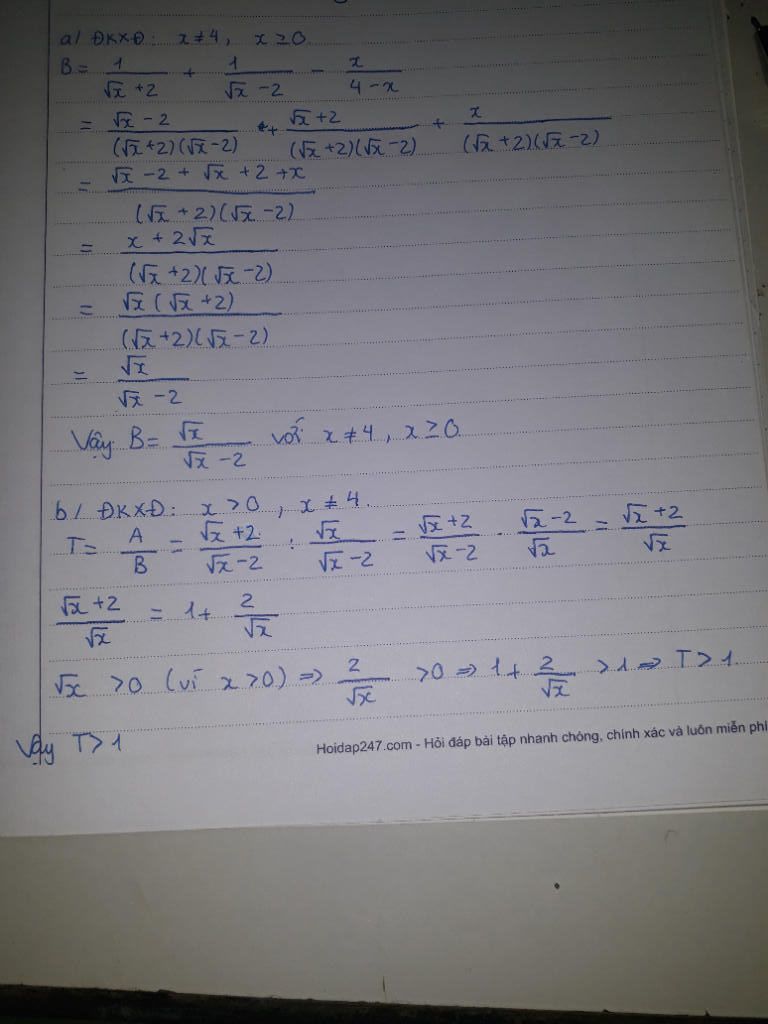 a/ ĐKXĐ: x ≠ 4, x ≥ 0
B = 1/(√x + 2) + 1/(√x - 2) - x/(4 - x)
= (√x - 2)/((√x+2)(√x-2)) + (√x+2)/((√x+2)(√x-2)) + x/((√x+2)(√x-2))
= (√x - 2 + √x + 2 + x)/((√x + 2)(√x - 2))
= (x + 2√x)/((√x+2)(√x-2))
= (√x(√x+2))/((√x+2)(√x-2))
= √x/(√x - 2)
Vậy B = √x/(√x - 2) với x ≠ 4, x ≥ 0
b/ ĐKXĐ: x > 0, x ≠ 4.
T = A/B = (√x+2)/(√x-2) : √x/(√x-2) = (√x+2)/(√x-2) . (√x-2)/√x = (√x+2)/√x
(√x+2)/√x = 1 + 2/√x
√x > 0 (vì x > 0) => 2/√x > 0 => 1 + 2/√x > 1 => T > 1
Vậy T > 1
Hoidap247.com - Hỏi đáp bài tập nhanh chóng, chính xác và luôn miễn phí